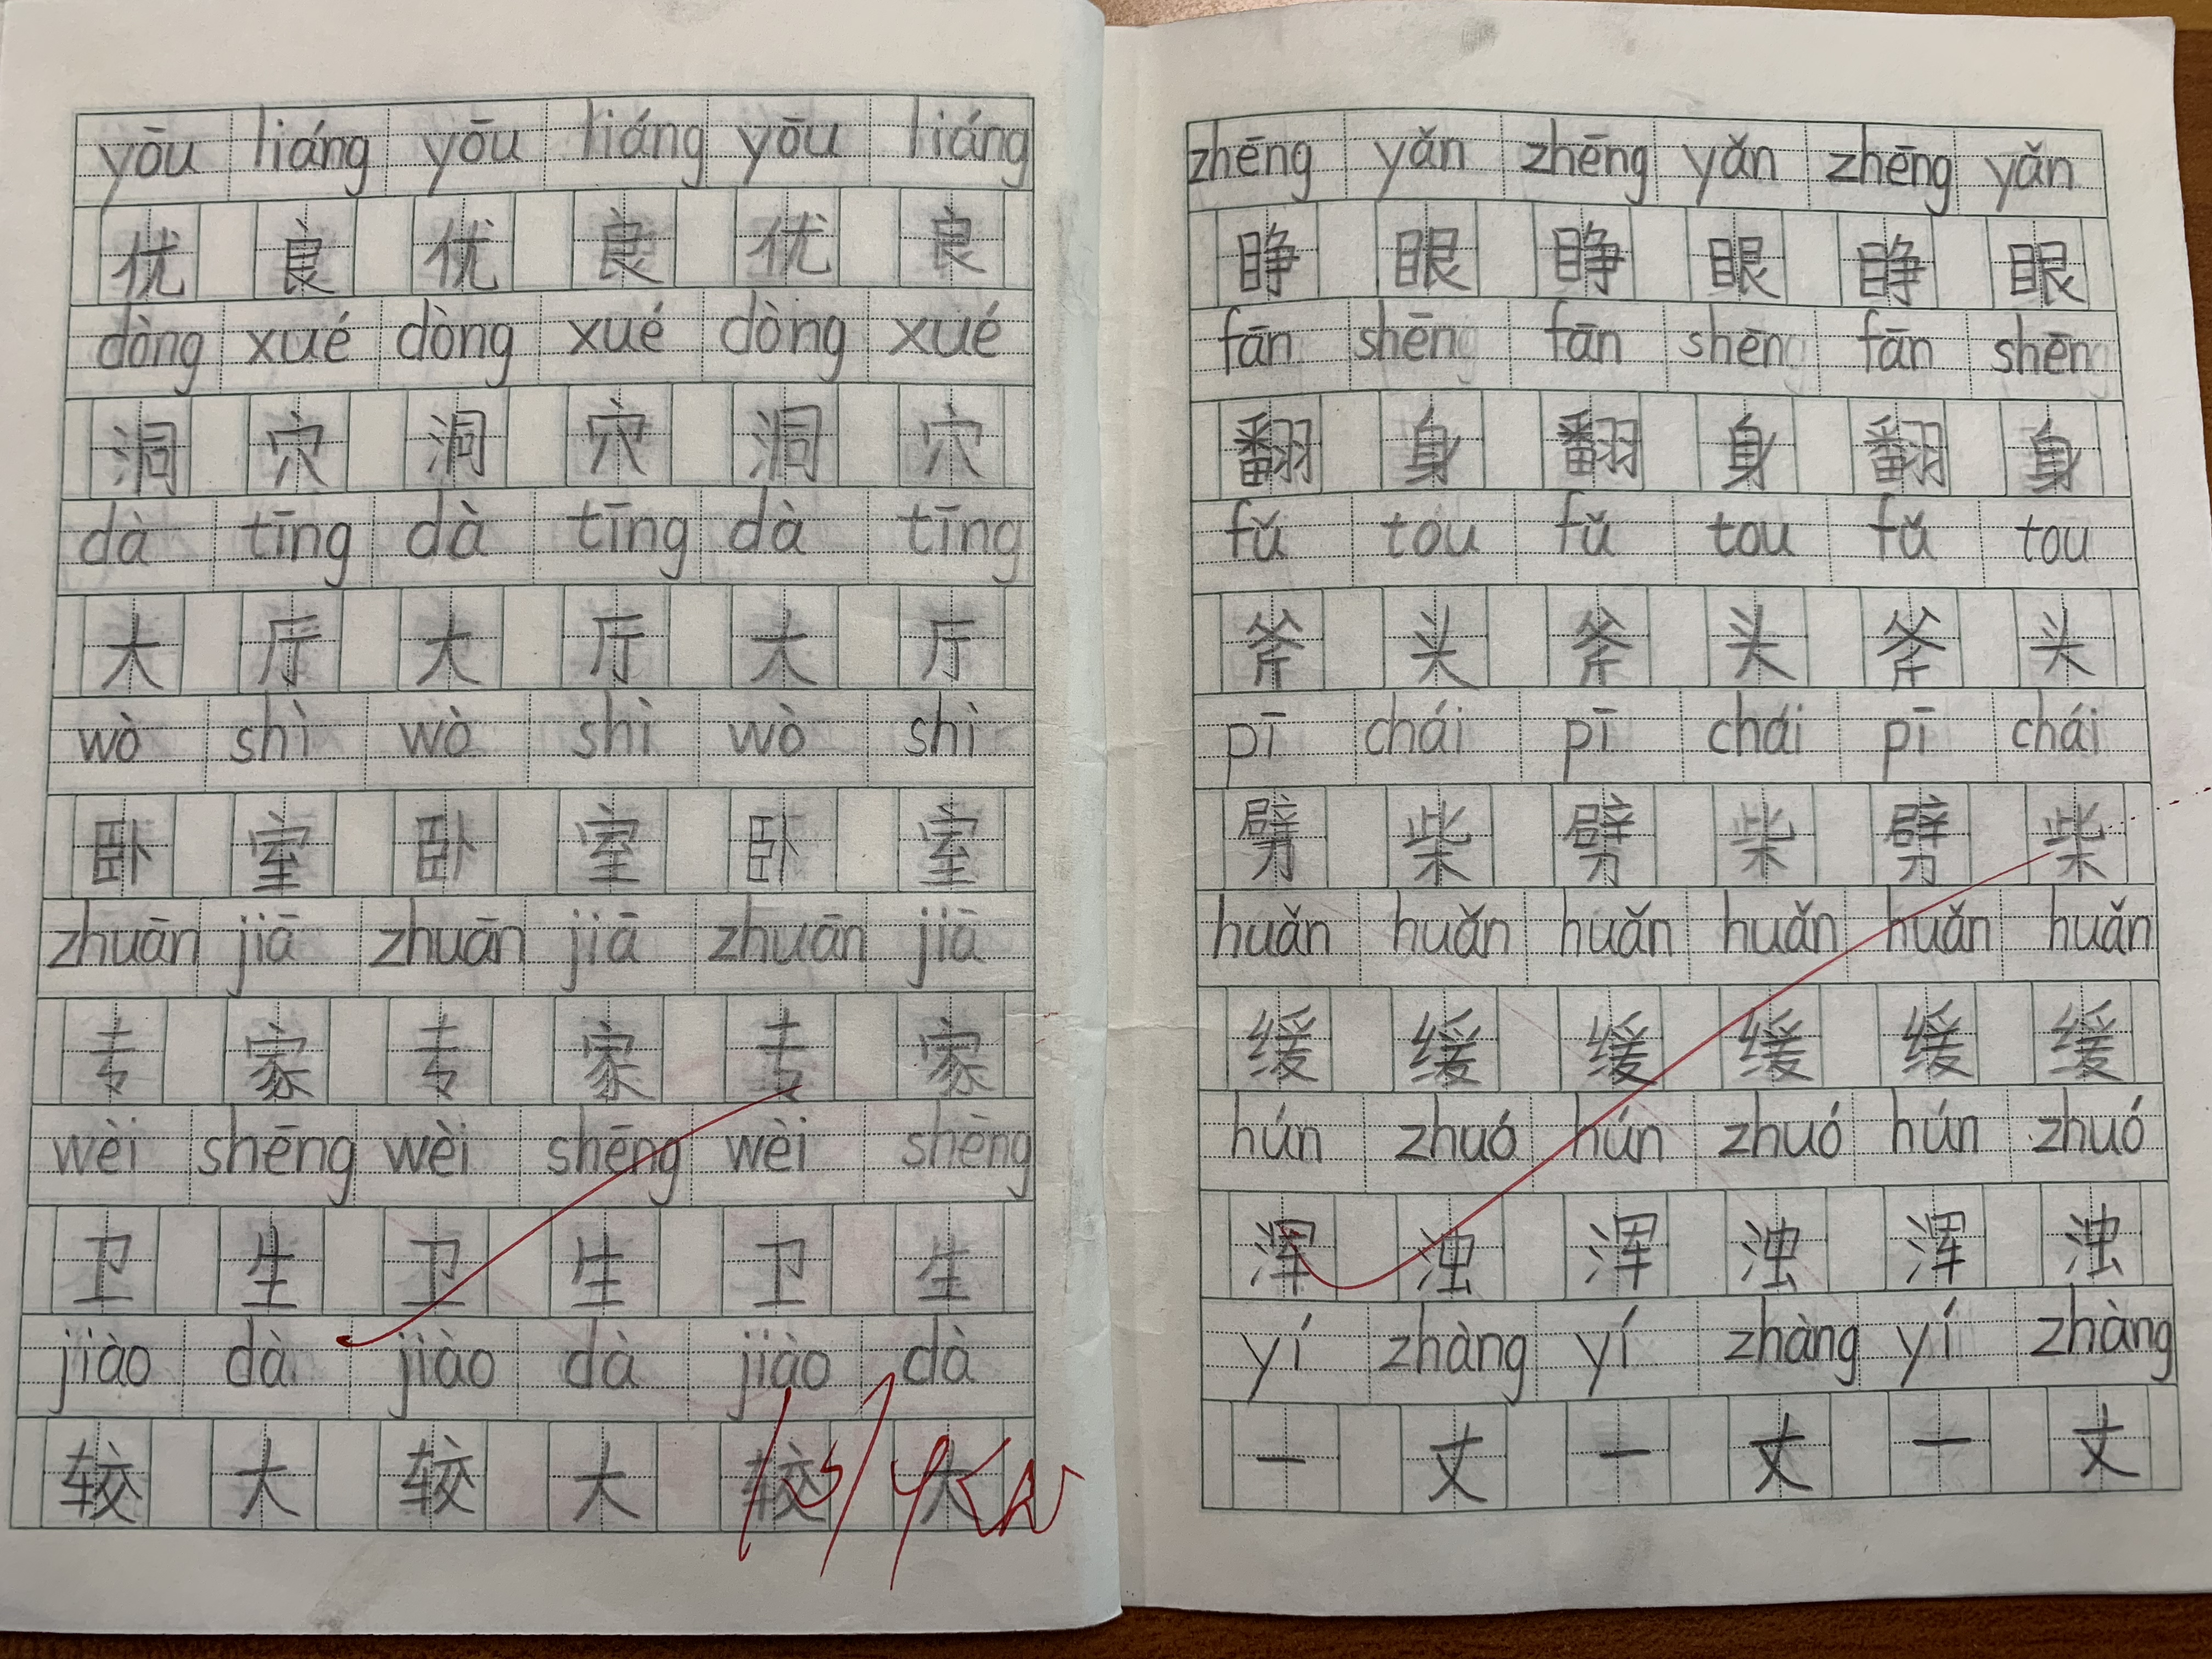 yōu liáng yōu liáng yōu liáng
优 良 优 良 优 良
dòng xué dòng xué dòng xué
洞 穴 洞 穴 洞 穴
dà tīng dà tīng dà tīng
大 厅 大 厅 大 厅
wò shì wò shì wò shì
卧 室 卧 室 卧 室
zhuān jiā zhuān jiā zhuān jiā
专 家 专 家 专 家
wèi shēng wèi shēng wèi shēng
卫 生 卫 生 卫 生
jiào dà jiào dà jiào dà
较 大 较 大 较 大
zhēng yǎn zhēng yǎn zhēng yǎn
睁 眼 睁 眼 睁 眼
fān shēng fān shēng fān shēng
翻 身 翻 身 翻 身
fǔ tou fǔ tou fǔ tou
斧 头 斧 头 斧 头
pī chái pī chái pī chái
劈 柴 劈 柴 劈 柴
huǎn huǎn huǎn huǎn huǎn huǎn
缓 缓 缓 缓 缓 缓
hún zhuó hún zhuó hún zhuó
浑 浊 浑 浊 浑 浊
yí zhàng yí zhàng yí zhàng
一 丈 一 丈 一 丈